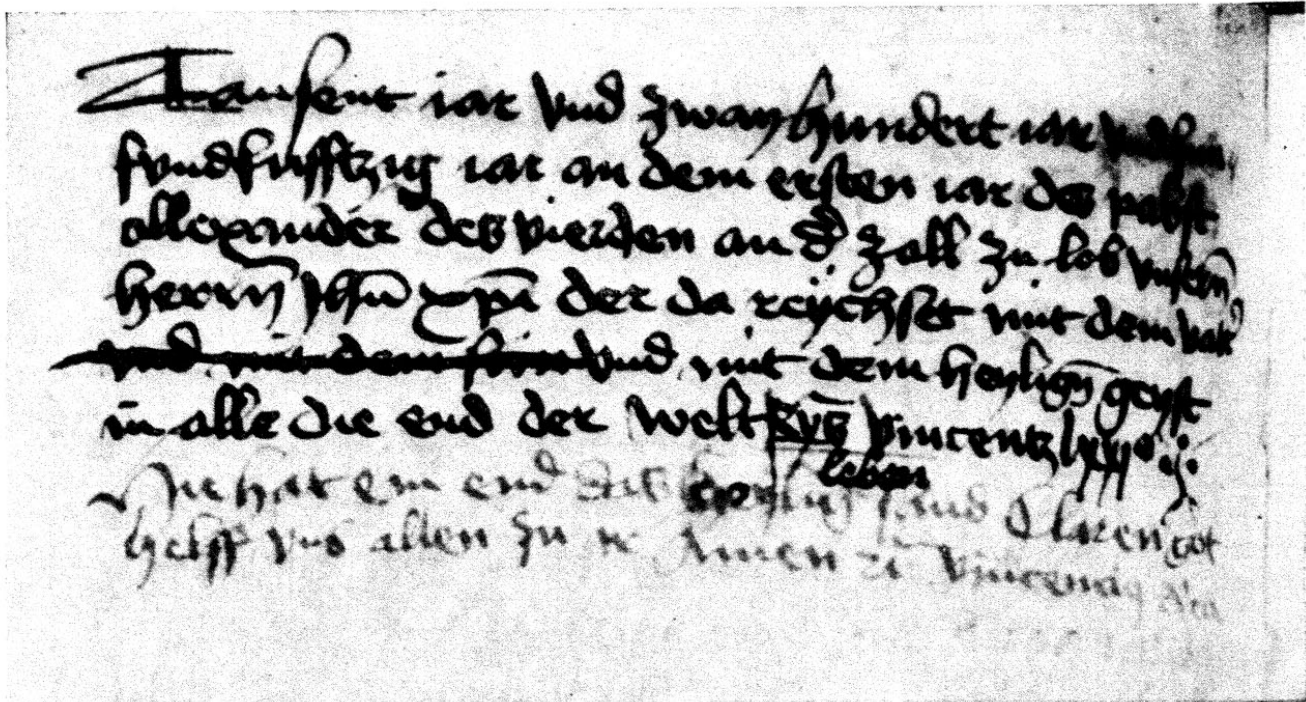 Tausent iar vnd zwayhundert iar
fvndfufftzig iar an dem ersten iar des pabst
allexander des vierden an d̄ zall zu lob vnsern̄
herrn̄ Jhū xp̄i der da reychset mit dem vat'
vnd mit dem sun vnd mit dem heylign̄ geyst
in alle die end der welt vincentz lxxº
leben
Hie hat ein end das sand Claren got
helff vns allen zu Amen